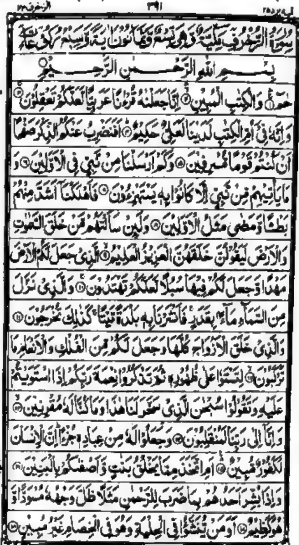 الزخرف ٤٣ ٣٩١ اليه يرد ٢٥
سورة الزخرف مكية وهي تسع وثمانون اية وسبع ركوعات
بسم الله الرحمن الرحيم
حم والكتب المبين انا جعلنه قرءنا عربيا لعلكم تعقلون
وانه في ام الكتب لدينا لعلي حكيم افنضرب عنكم الذكر صفحا
ان كنتم قوما مسرفين وكم ارسلنا من نبي في الاولين و
ما ياتيهم من نبي الا كانوا به يستهزءون فاهلكنا اشد منهم
بطشا ومضى مثل الاولين ولئن سالتهم من خلق السموت
والارض ليقولن خلقهن العزيز العليم الذي جعل لكم الارض
مهدا وجعل لكم فيها سبلا لعلكم تهتدون والذي نزل
من السماء ماء بقدر فانشرنا به بلدة ميتا كذلك تخرجون
والذي خلق الازواج كلها وجعل لكم من الفلك والانعام ما
تركبون لتستوا على ظهوره ثم تذكروا نعمة ربكم اذا استويتم
عليه وتقولوا سبحن الذي سخر لنا هذا وما كنا له مقرنين
وانا الى ربنا لمنقلبون وجعلوا له من عباده جزءا ان الانسان
لكفور مبين ام اتخذ مما يخلق بنت واصفىكم بالبنين
واذا بشر احدهم بما ضرب للرحمن مثلا ظل وجهه مسودا
وهو كظيم اومن ينشؤا في الحلية وهو في الخصام غير مبين